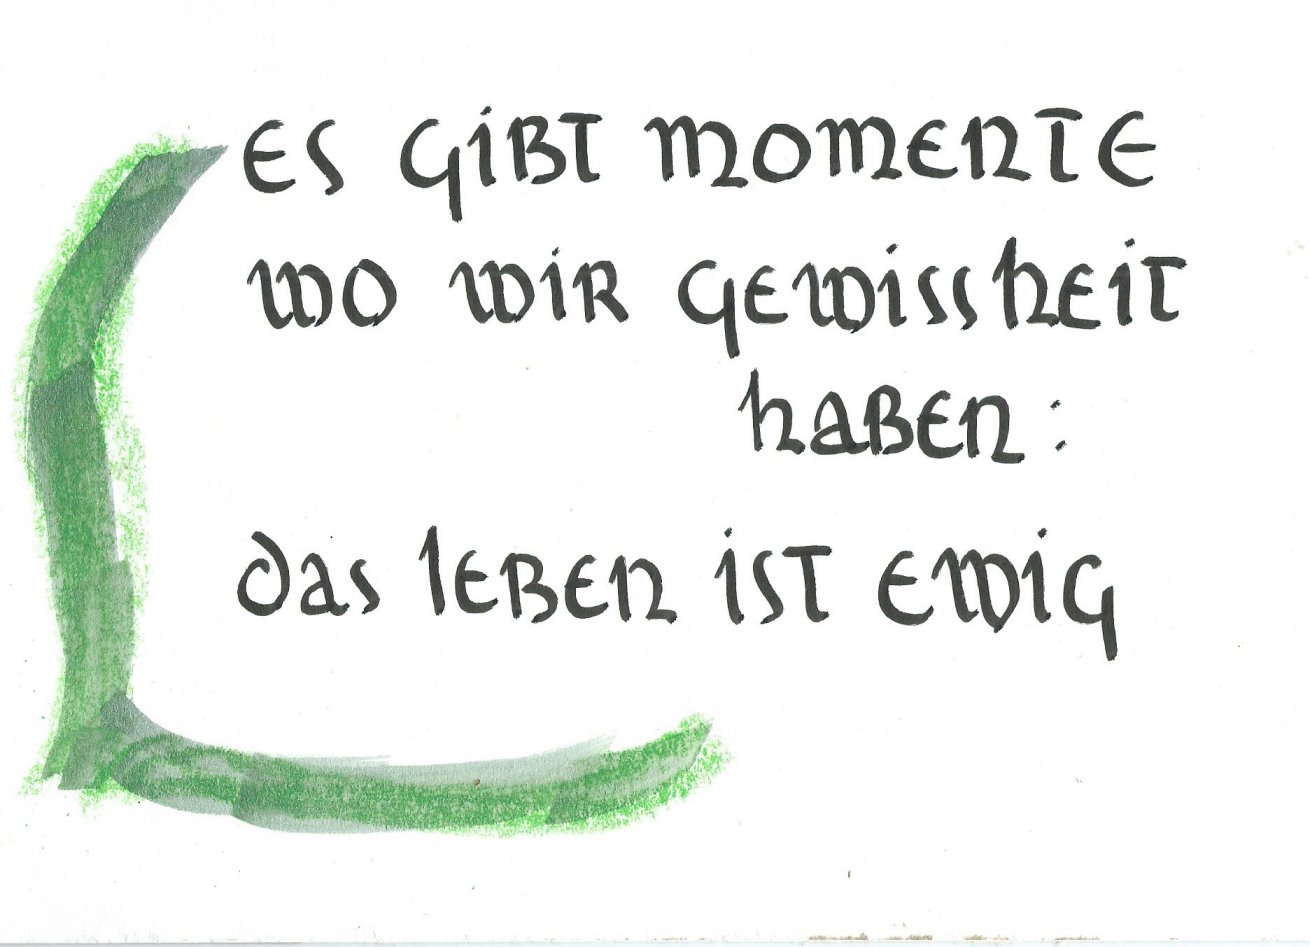 Es gibt Momente
wo wir Gewissheit
haben:
das Leben ist ewig